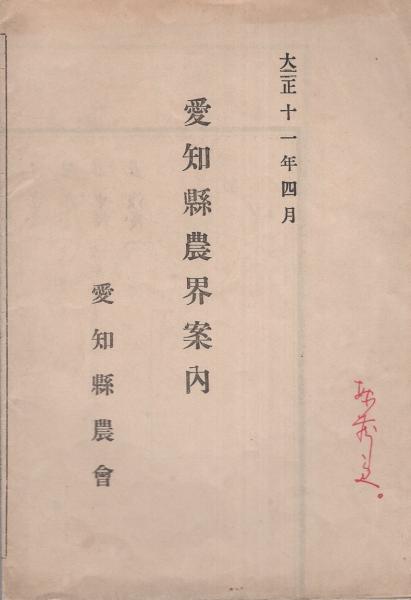 大正十一年四月
愛知縣農界案内
愛知縣農會